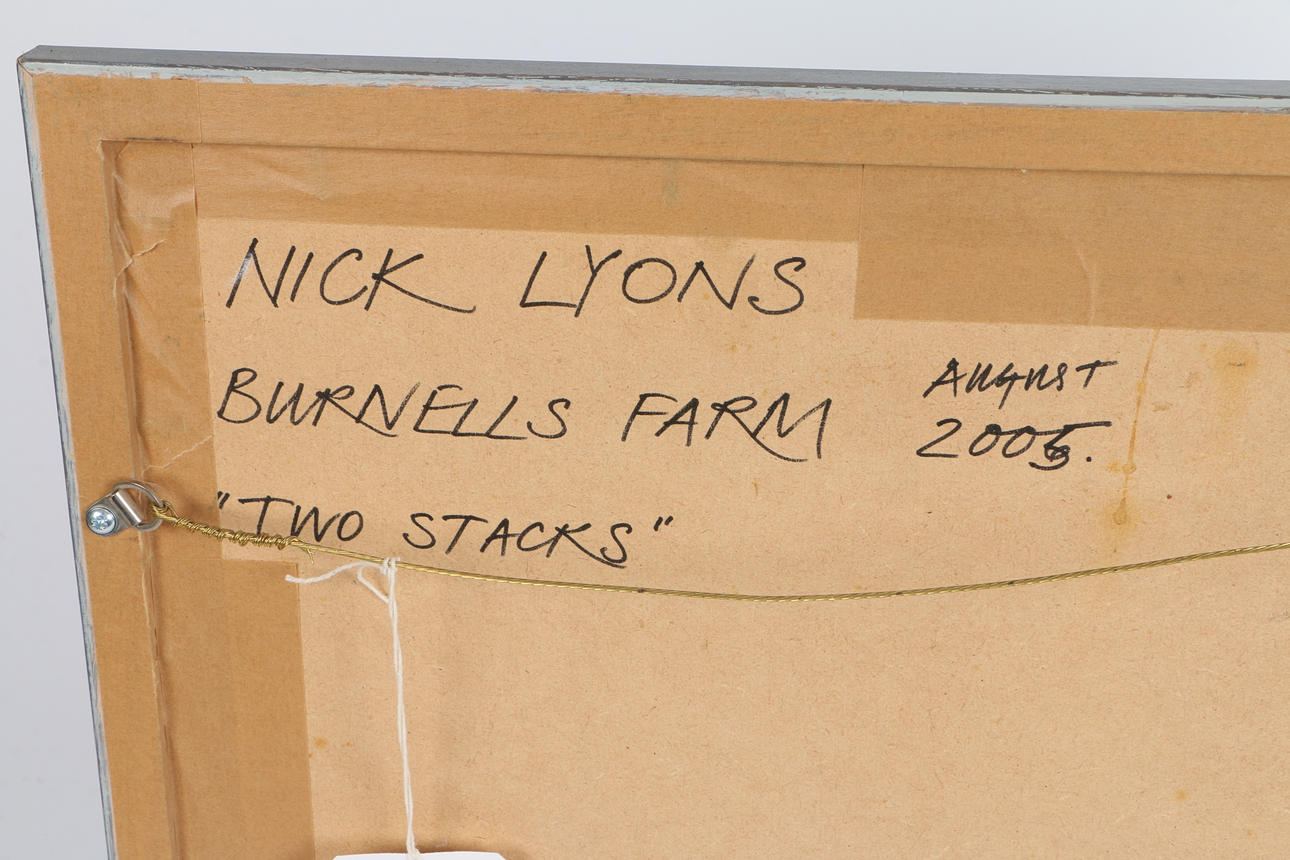 NICK LYONS
BURNELLS FARM
AUGUST
2005.
"TWO STACKS"